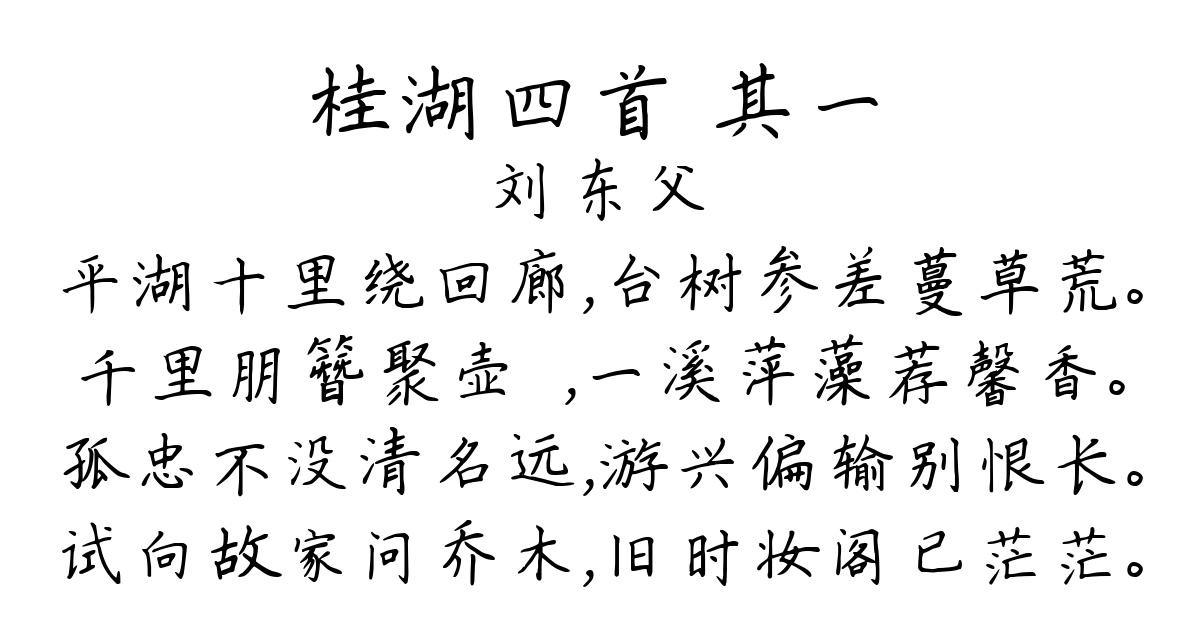 桂湖四首 其一
刘东父
平湖十里绕回廊,台树参差蔓草荒。
千里朋簪聚壶 ,一溪萍藻荐馨香。
孤忠不没清名远,游兴偏输别恨长。
试向故家问乔木,旧时妆阁已茫茫。